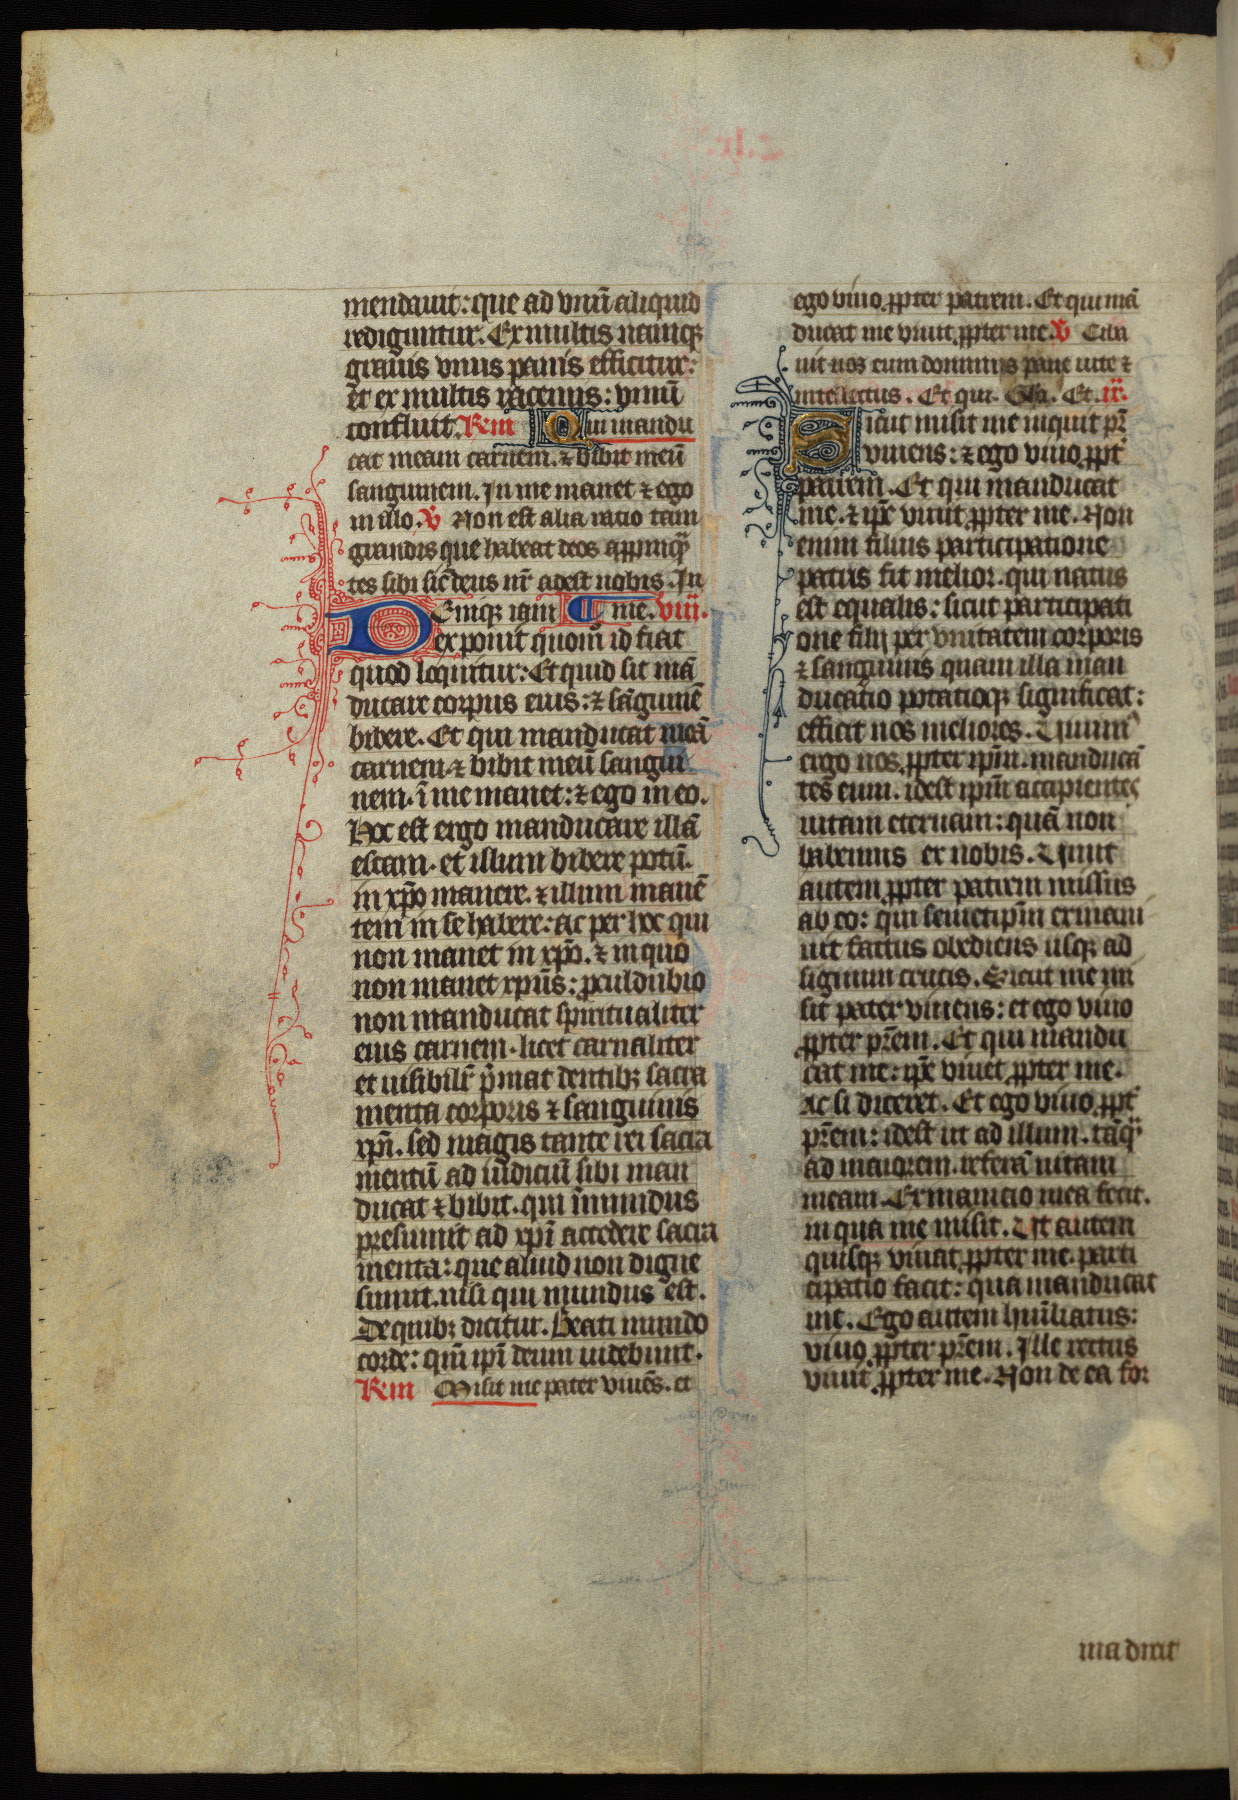 mendauit: que ad vnū aliquid
rediguntur. Ex multis namqʒ
granis vnus panis efficitur:
et ex multis racemis: vinū
confluit. R̃m Qui mandu
cat meam carnem. ⁊ bibit meū
sanguinem. In me manet ⁊ ego
in illo. V̾ Non est alia natio tam
grandis que habeat deos appinqua
tes sibi sic̄ deus nr̄ adest nobis. In
Deniqʒ iam me. viij.
exponit quom̄ id fiat
quod loquitur: Et quid sit mā
ducare corpus eius: ⁊ sāguinē
bibere. Et qui manducat meā
carnem ⁊ bibit meū sangui
nem. ī me manet: ⁊ ego in eo.
Hoc est ergo manducare illā
escam. et illum bibere potū.
in xp̄o manere. ⁊ illum manē
tem in se habere: ac per hoc qui
non manet in xp̄o. ⁊ in quo
non manet xpūs: proculdubio
non manducat spiritualiter
eius carnem. licet carnaliter
et uisibilr̄ p̄mat dentibʒ sacra
menta corporis ⁊ sanguinis
xpī. sed magis tante rei sacra
mentū ad iudiciū sibi man
ducat ⁊ bibit. qui īmundus
presumit ad xpī accedere sacra
menta: que aliud non digne
sumit. nisi qui mundus est.
De quibʒ dicitur. Beati mundo
corde: qm̄ ipī deum uidebunt.
R̃m Misit me pater viuēs. et
ego viuo ꝓpter patrem. Et qui mā
ducat me viuit ꝓpter me. V̾ Ciba
uit nos eum dominus pane uite ⁊
intellectus. Et qui. Glia. Et. ix.
Sicut misit me inquit pr̄
viuens: ⁊ ego viuo ꝓpt̄
patrem. Et qui manducat
me. ⁊ ip̄e viuit ꝓpter me. Non
enim filius participatione
patris fit melior. qui natus
est equalis: sicut participati
one filij per vnitatem corporis
⁊ sanguinis quam illa man
ducatio potatioqʒ significat:
efficit nos meliores. Viuim᾽
ergo nos ꝓpter ip̄m. manducā
tes eum. idest ip̄m accipientes
uitam eternam: quā non
habemus ex nobis. Viuit
autem ꝓpter patrem missus
ab eo: qui semetip̄m exinani
uit factus obediens usqʒ ad
lignum crucis. Sicut me mi
sit pater viuens: et ego viuo
ꝓpter pr̄em. Et qui mandu
cat me: ip̄e viuet ꝓpter me.
Ac si diceret. Et ego viuo ꝓpt̄
pr̄em: idest ut ad illum. tāqᷓ
ad maiorem. referā uitam
meam. Exmanitio mea fecit.
in qua me misit. Vt autem
quisqʒ viuat ꝓpter me. parti
cipatio facit: qua manducat
me. Ego autem humiliatus:
viuo ꝓpter pr̄em. Ille rectus
viuit ꝓpter me. Non de ea for
ma dicit